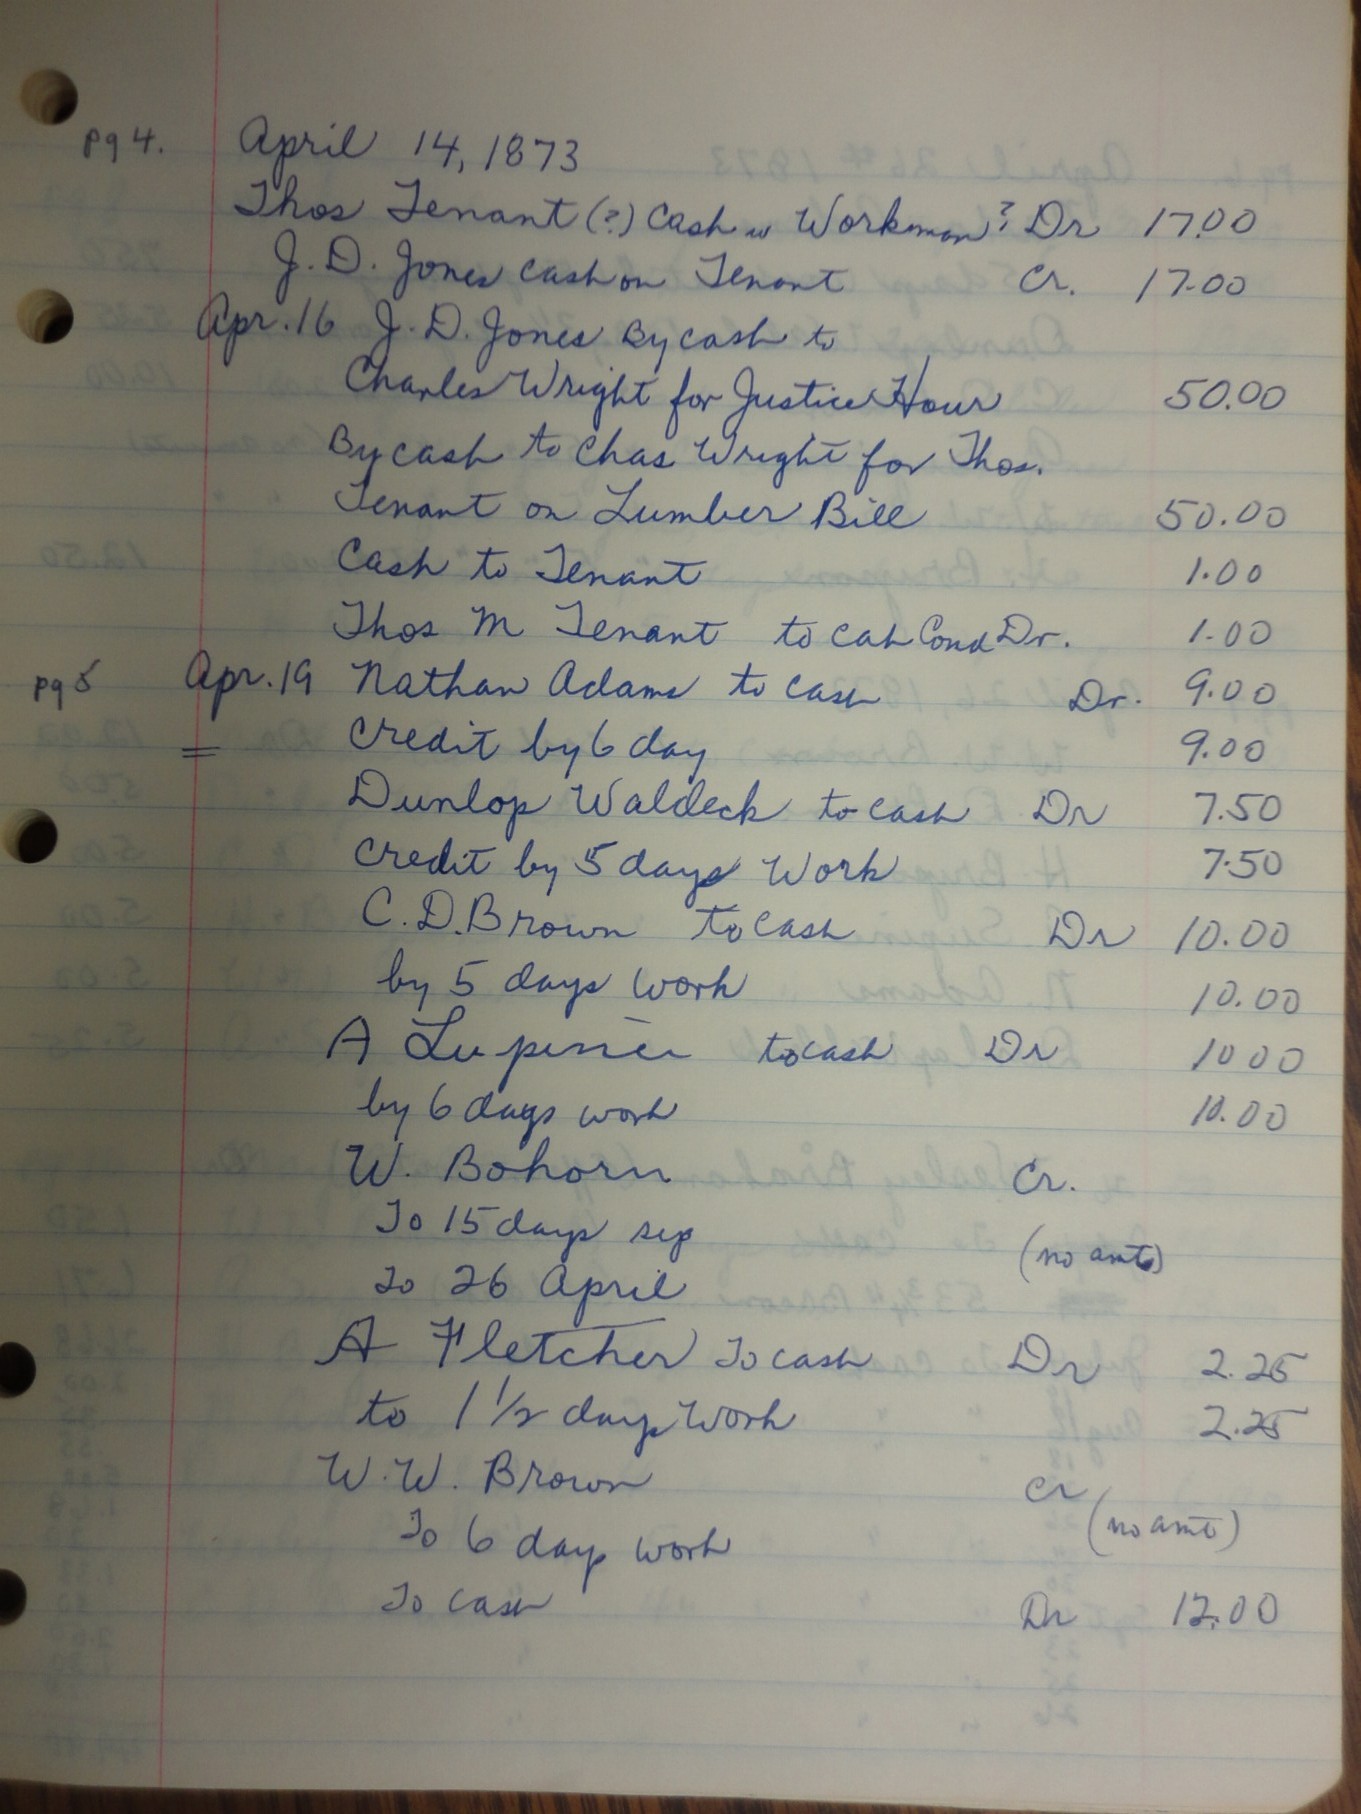 pg 4. April 14, 1873
Thos Tenant (?) Cash w Workman? Dr 17.00
J. D. Jones cash on Tenant Cr. 17.00
Apr. 16 J. D. Jones By cash to
Charles Wright for Justice Hour 50.00
By cash to Chas Wright for Thos.
Tenant on Lumber Bill 50.00
Cash to Tenant 1.00
Thos M Tenant to cah Cond Dr. 1.00
pg 5 Apr. 19 Nathan Adams to cash Dr. 9.00
= Credit by 6 day 9.00
Dunlop Waldeck to cash Dr 7.50
Credit by 5 days Work 7.50
C. D. Brown to cash Dr 10.00
by 5 days work 10.00
A to cash Dr 10 00
by 6 days work 10.00
W. Bohorn Cr.
To 15 days sep (no amt)
to 26 April
A Fletcher To cash Dr 2.25
to 1 1/2 days Work 2.25
W. W. Brown Cr
To 6 days work (no amt)
To cash Dr 12.00